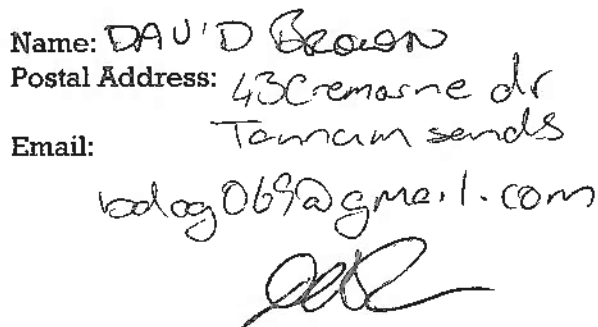 Name: DAVID BROWN
Postal Address: 43 Cremorne dr
Tannum sands
Email:
bdog069@gmail.com